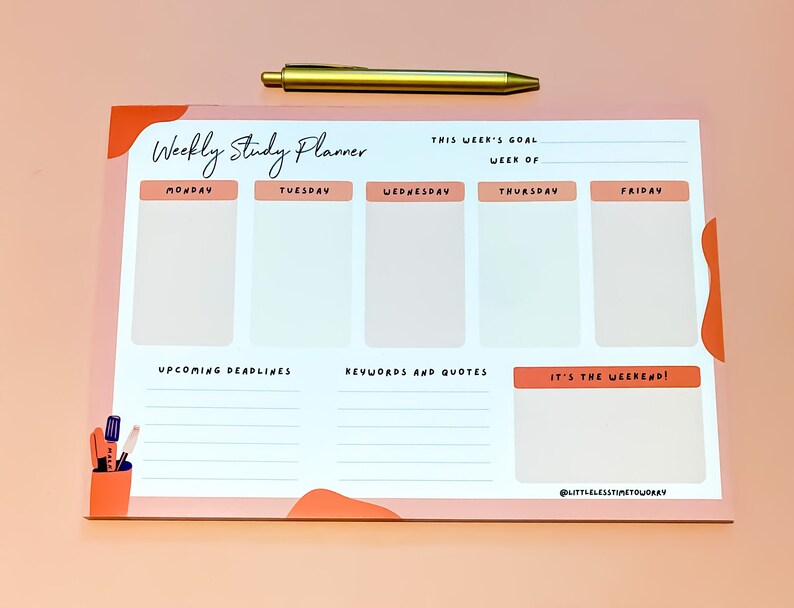 Weekly Study Planner
THIS WEEK'S GOAL
WEEK OF
MONDAY
TUESDAY
WEDNESDAY
THURSDAY
FRIDAY
UPCOMING DEADLINES
KEYWORDS AND QUOTES
IT'S THE WEEKEND!
@LITTLELESSTIMETOWORRY